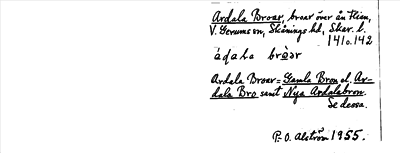 Ardala Broar, broar över ån Flian,
V. Gerums sn, Skånings hd, Skar. l.
141 o. 142
Ardala Broar = Gamla Bron el. Ar-
dala Bro samt Nya Ardalabron.
Se dessa.
P. O. Alström 1955.